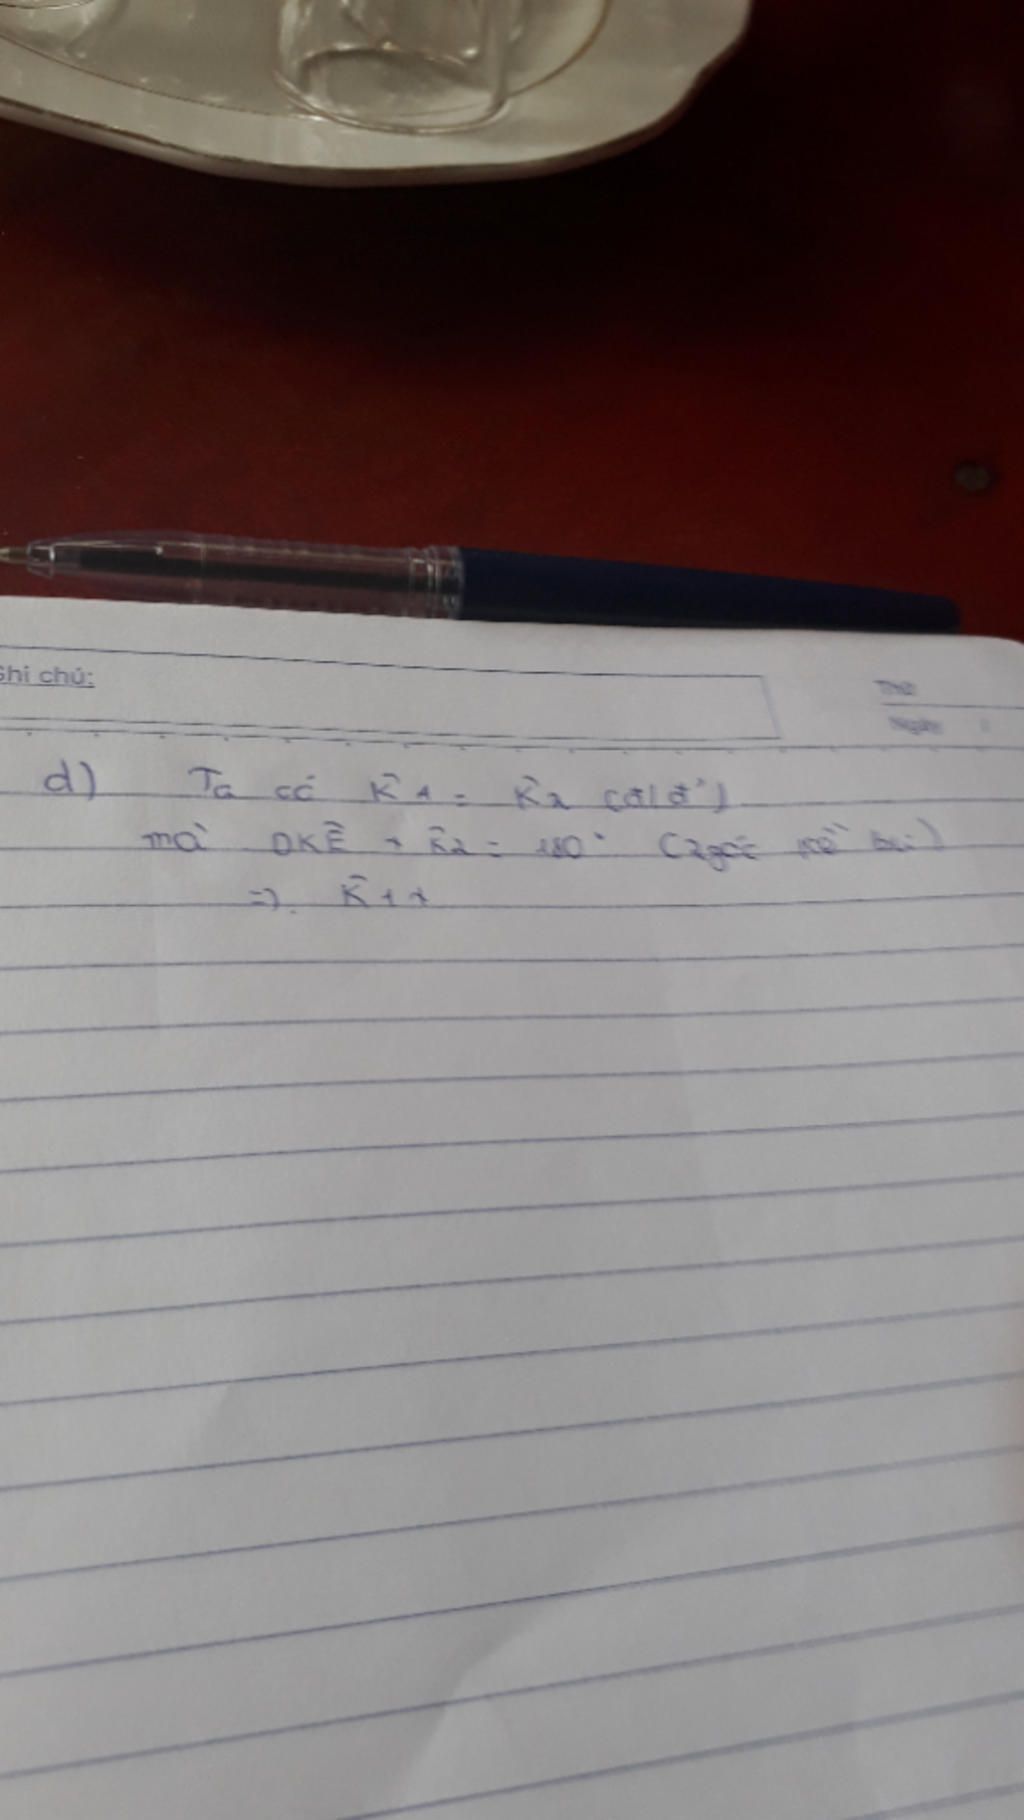 Ghi chú:
Thứ
Ngày
d) Ta có K̂1 = K̂2 (đ/đ')
mà DKÊ + K̂2 = 180° (2 góc kề bù)
=> K̂1 +